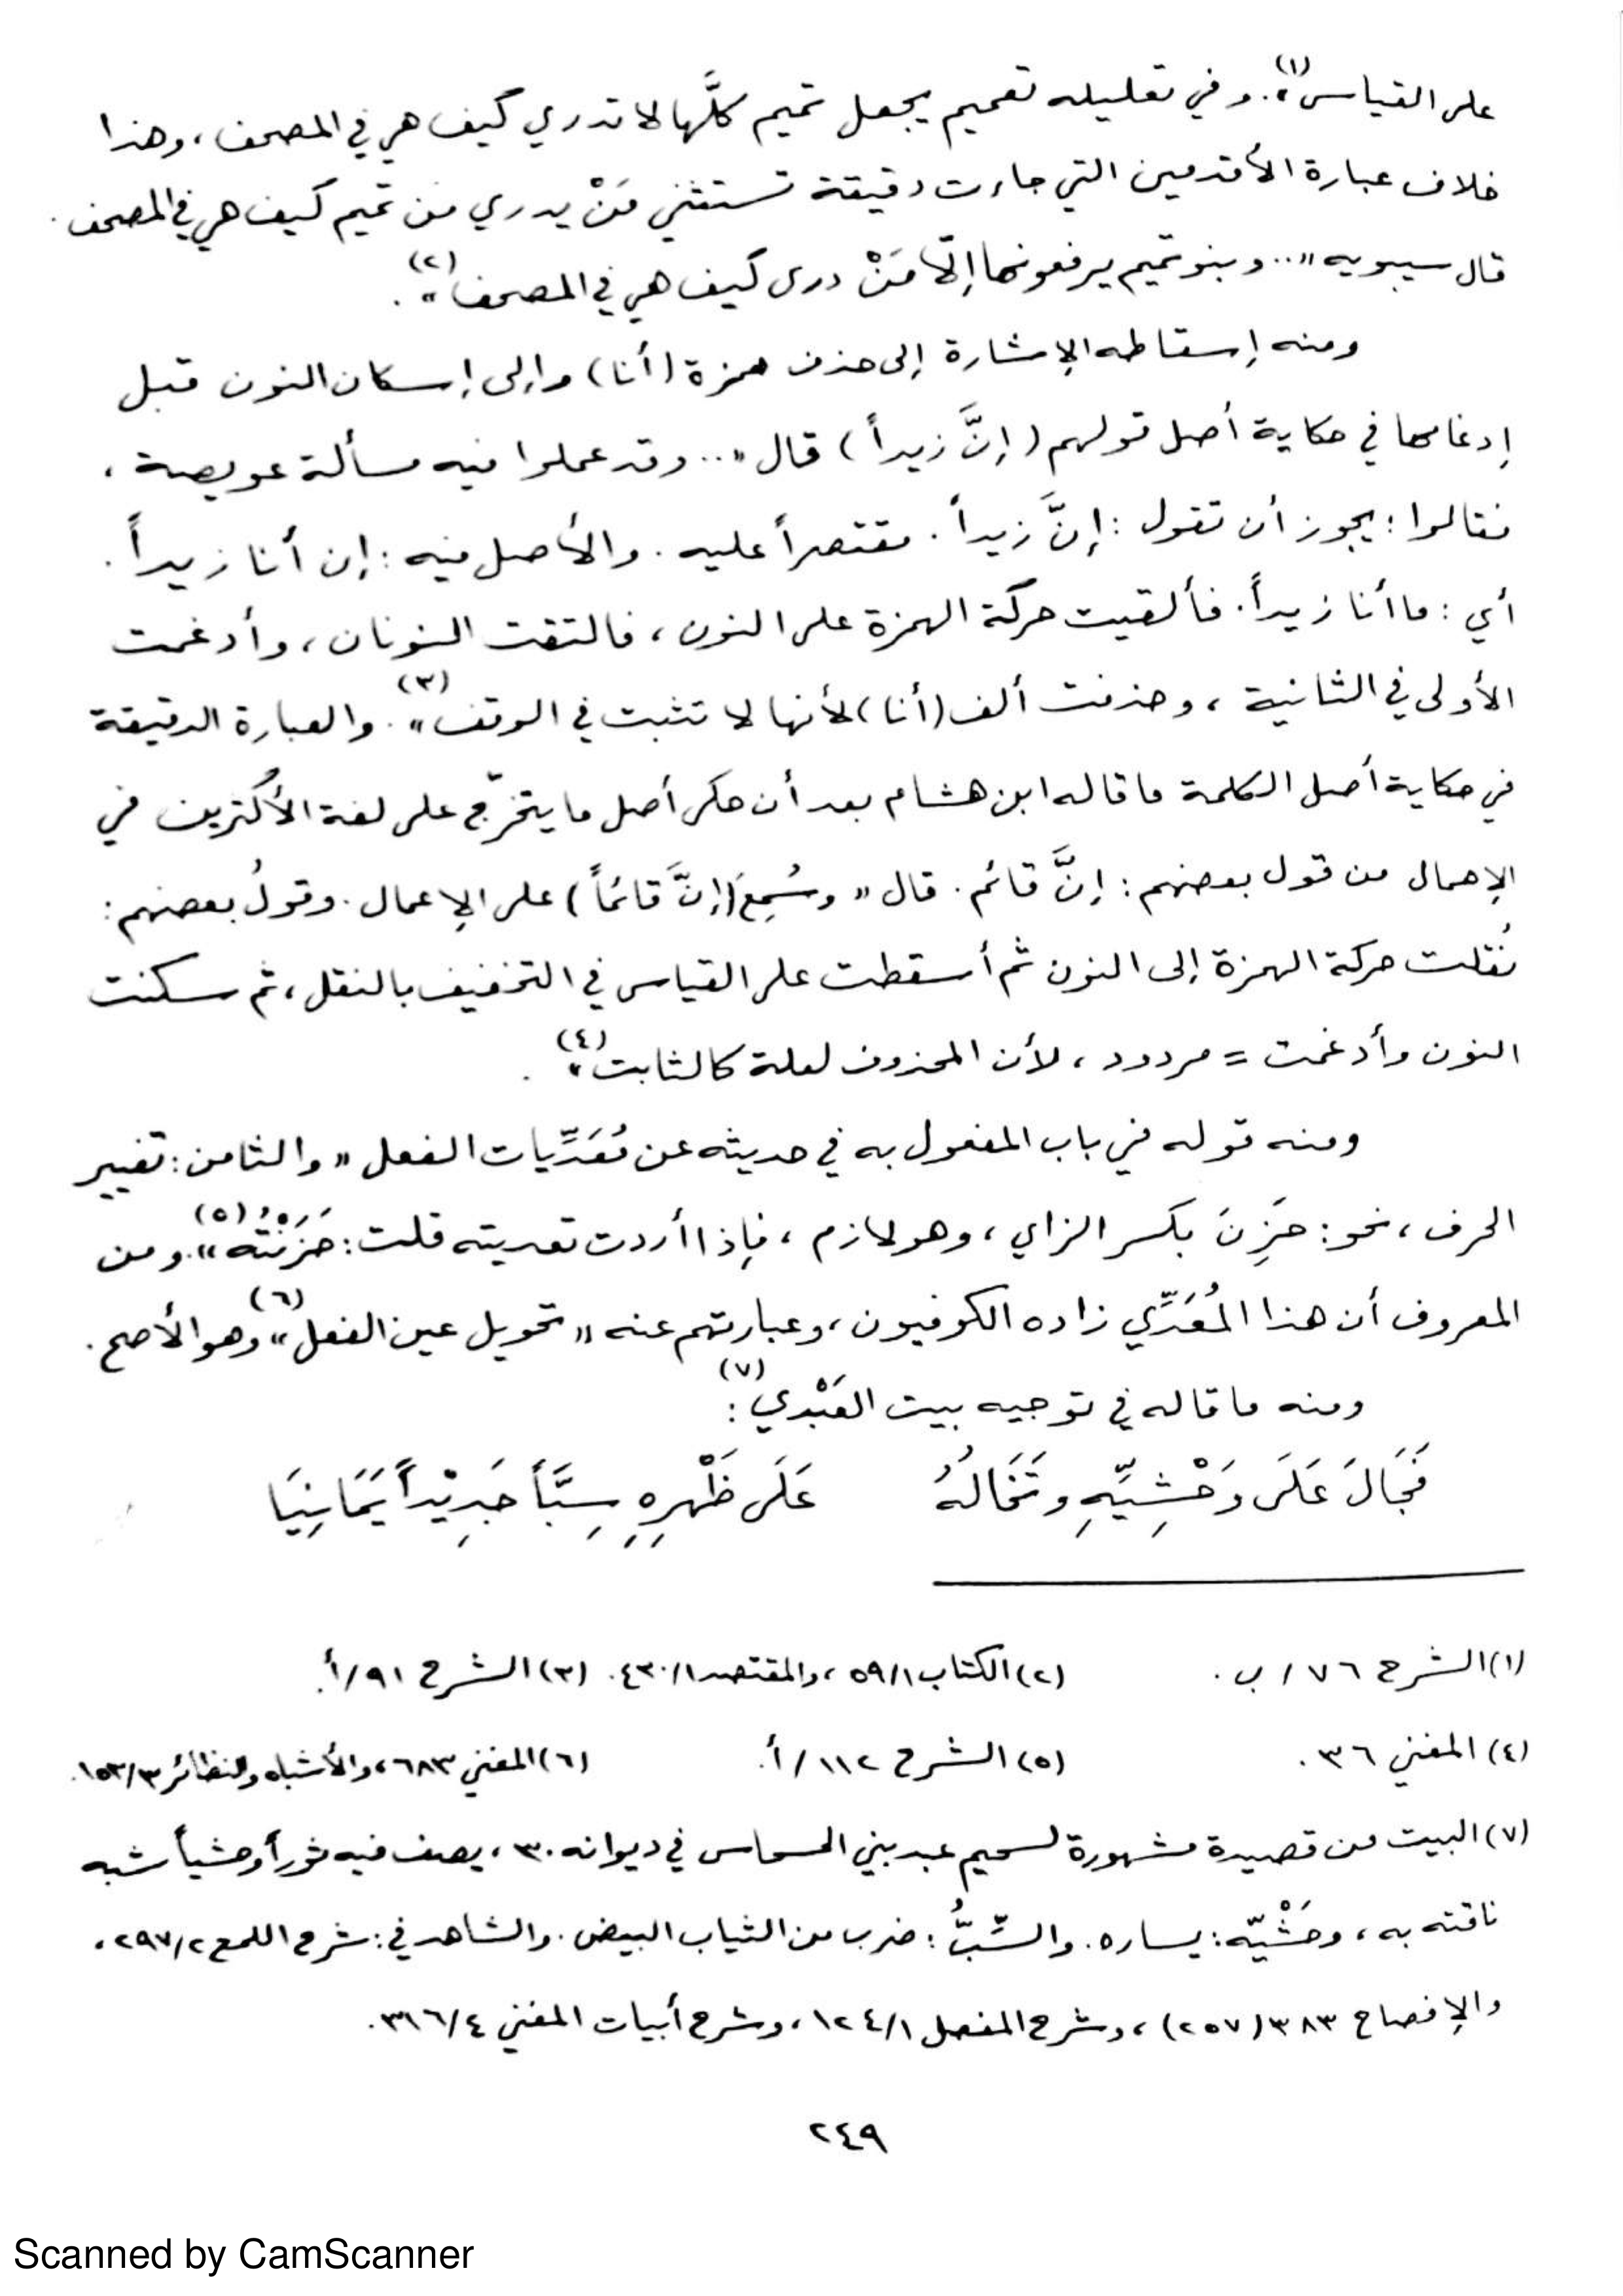 على القياس»(١). وفي تعليله تعميم يجعل تميم كلَّها لا تدري كيف هي في المصحف، وهذا
خلاف عبارة الأقدمين التي جاءت دقيقة تستثني مَنْ يدري من تميم كيف هي في المصحف.
قال سيبويه «.. وبنو تميم يرفعونها إلّا مَنْ درى كيف هي في المصحف»(٢).
ومنه إسقاطه الإشارة إلى حذف همزة (أنا) وإلى إسكان النون قبل
إدغامها في حكاية أصل قولهم (إنَّ زيداً) قال «.. وقد عملوا فيه مسألة عويصة،
فقالوا: يجوز أن تقول: إنَّ زيداً. مقتصراً عليه. والأصل فيه: إن أنا زيداً.
أي: ما أنا زيداً. فألقيت حركة الهمزة على النون، فالتقت النونان، وأدغمت
الأولى في الثانية، وحذفت ألف (أنا) لأنها لا تثبت في الوقف»(٣). والعبارة الدقيقة
في حكاية أصل الكلمة ما قاله ابن هشام بعد أن حكى أصل ما يتخرّج على لغة الأكثرين في
الإهمال من قول بعضهم: إنَّ قائم. قال «وسُمِعَ (إنَّ قائمًا) على الإعمال. وقولُ بعضهم:
نُقلت حركة الهمزة إلى النون ثم أسقطت على القياس في التخفيف بالنقل، ثم سكنت
النون وأدغمت = مردود، لأن المحذوف لعلة كالثابت»(٤).
ومنه قوله في باب المفعول به في حديثه عن مُعَدِّيات الفعل «والثامن: تغيير
الحرف، نحو: حَزِنَ بكسر الزاي، وهو لازم، فإذا أردت تعديته قلت: حَزَنْتُه»(٥). ومن
المعروف أن هذا المُعَدِّي زاده الكوفيون، وعبارتهم عنه «تحويل عين الفعل»(٦) وهو الأصح.
ومنه ما قاله في توجيه بيت العَبْدي(٧):
فَجَالَ عَلَى وَحْشِيِّهِ وتَخَالُهُ عَلَى ظَهْرِهِ سِبَّاً جَدِيْداً يَمَانِيَا
(١) الشرح ٧٦/ب. (٢) الكتاب ٥٩/١، والمقتصد ٤٣٠/١. (٣) الشرح ٩١/أ.
(٤) المغني ٣٦. (٥) الشرح ١١٢/أ. (٦) المغني ٦٨٣، والأشباه والنظائر ١٥٣/٣.
(٧) البيت من قصيدة مشهورة لسحيم عبد بني الحسحاس في ديوانه ٣٠، يصف فيه ثوراً وحشياً شبه
ناقته به، وحَشْيّه: يساره. والسِّبُّ: ضرب من الثياب البيض. والشاهد في: شرح اللمع ٢٩٧/٢،
والإفصاح ٣٨٣ (٢٥٧)، وشرح المفصل ١٢٤/١، وشرح أبيات المغني ٣١٦/٤.
٢٤٩
Scanned by CamScanner